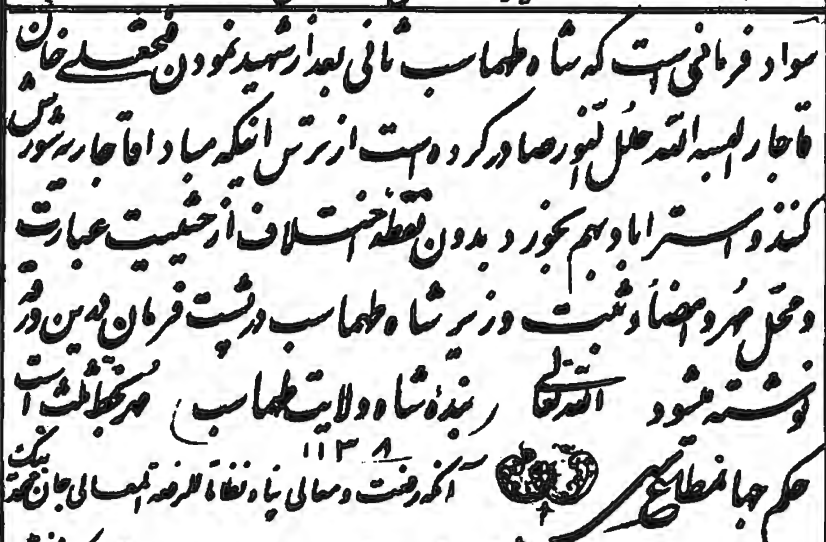 سواد فرمانی است که شاه طهماسب ثانی بعد از شهید نمودن فتحعلی خان
قاجار البسه الله حلل النور صادر کرده است از ترس اینکه مبادا قاجاریه شورش
کنند و استراباد بهم بخورد بدون نقطه اختلاف از حیثیت عبارت
و محل مهر و امضا و ثبت وزیر شاه طهماسب در پشت فرمان درین ورقه
نوشته میشود الله تعالی (بنده شاه ولایت طهماسب) مهر بخط ثلث است
۱۱۳۸
حکم جهانمطاع شد آنکه رفعت و معالی پناه نظاما للرفعه المعالی جان محمد بیک